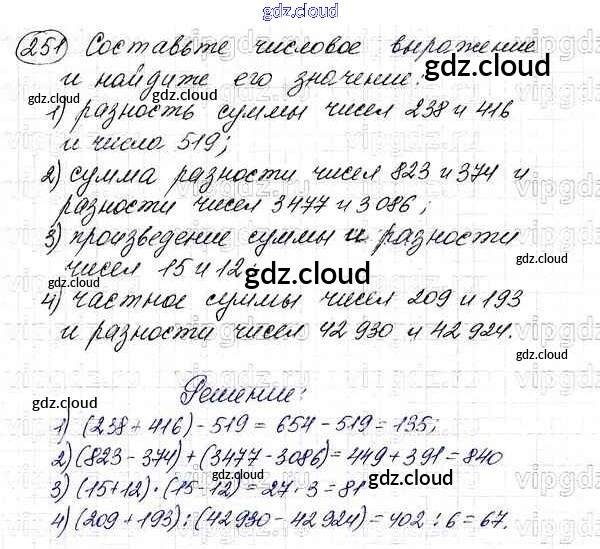 gdz.cloud
251 Составьте числовое выражение
и найдите его значение:
gdz.cloud gdz.cloud
1) разность суммы чисел 238 и 416
и числа 519;
gdz.cloud
2) сумма разности чисел 823 и 374 и
разности чисел 3477 и 3086;
3) произведение суммы и разности
чисел 15 и 12;
gdz.cloud gdz.cloud
4) частное суммы чисел 209 и 193
и разности чисел 42 930 и 42 924.
gdz.cloud
Решение:
gdz.cloud gdz.cloud
1) (238 + 416) - 519 = 654 - 519 = 135;
2) (823 - 374) + (3477 - 3086) = 449 + 391 = 840
3) (15 + 12) · (15 - 12) = 27 · 3 = 81
4) (209 + 193) : (42 930 - 42 924) = 402 : 6 = 67.
gdz.cloud